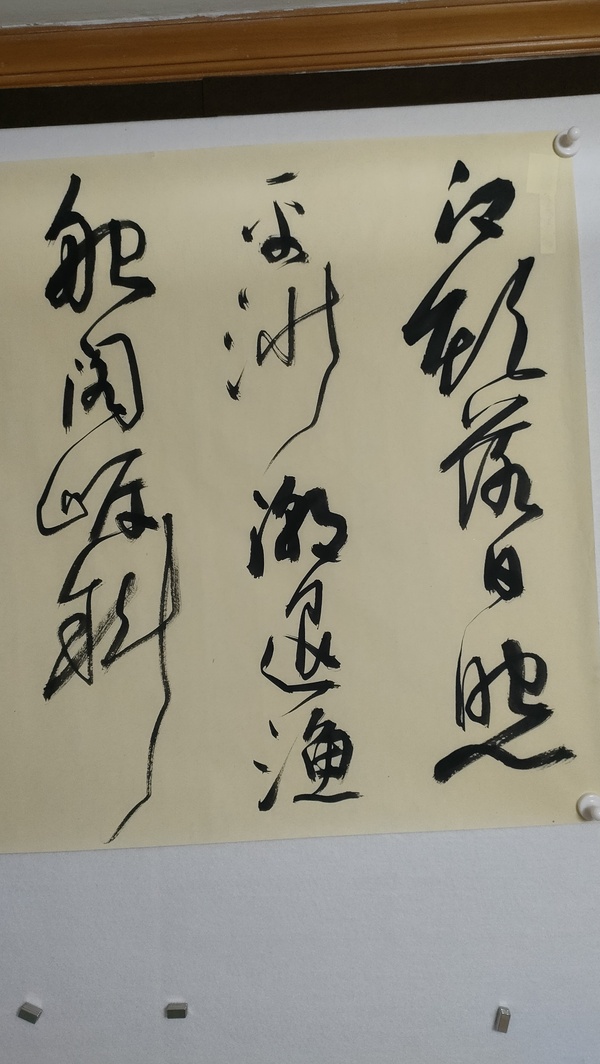 江頭落日照
平沙潮退漁
船閣岸斜